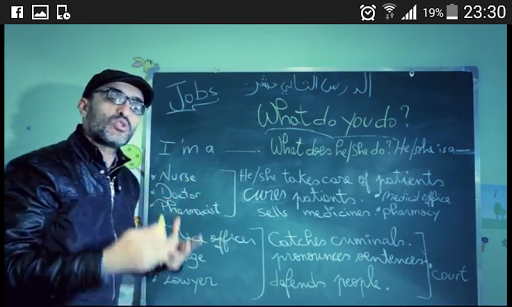 19% 23:30
Jobs الدرس الثاني عشر:
What do you do?
I'm a ___. What does he/she do? He/she is a __.
• Nurse He/she takes care of patients
• Doctor cures patients. • medical office
• Pharmacist sells medicines • pharmacy
officer Catches criminals.
pronounces sentences
• Lawyer defends people. court